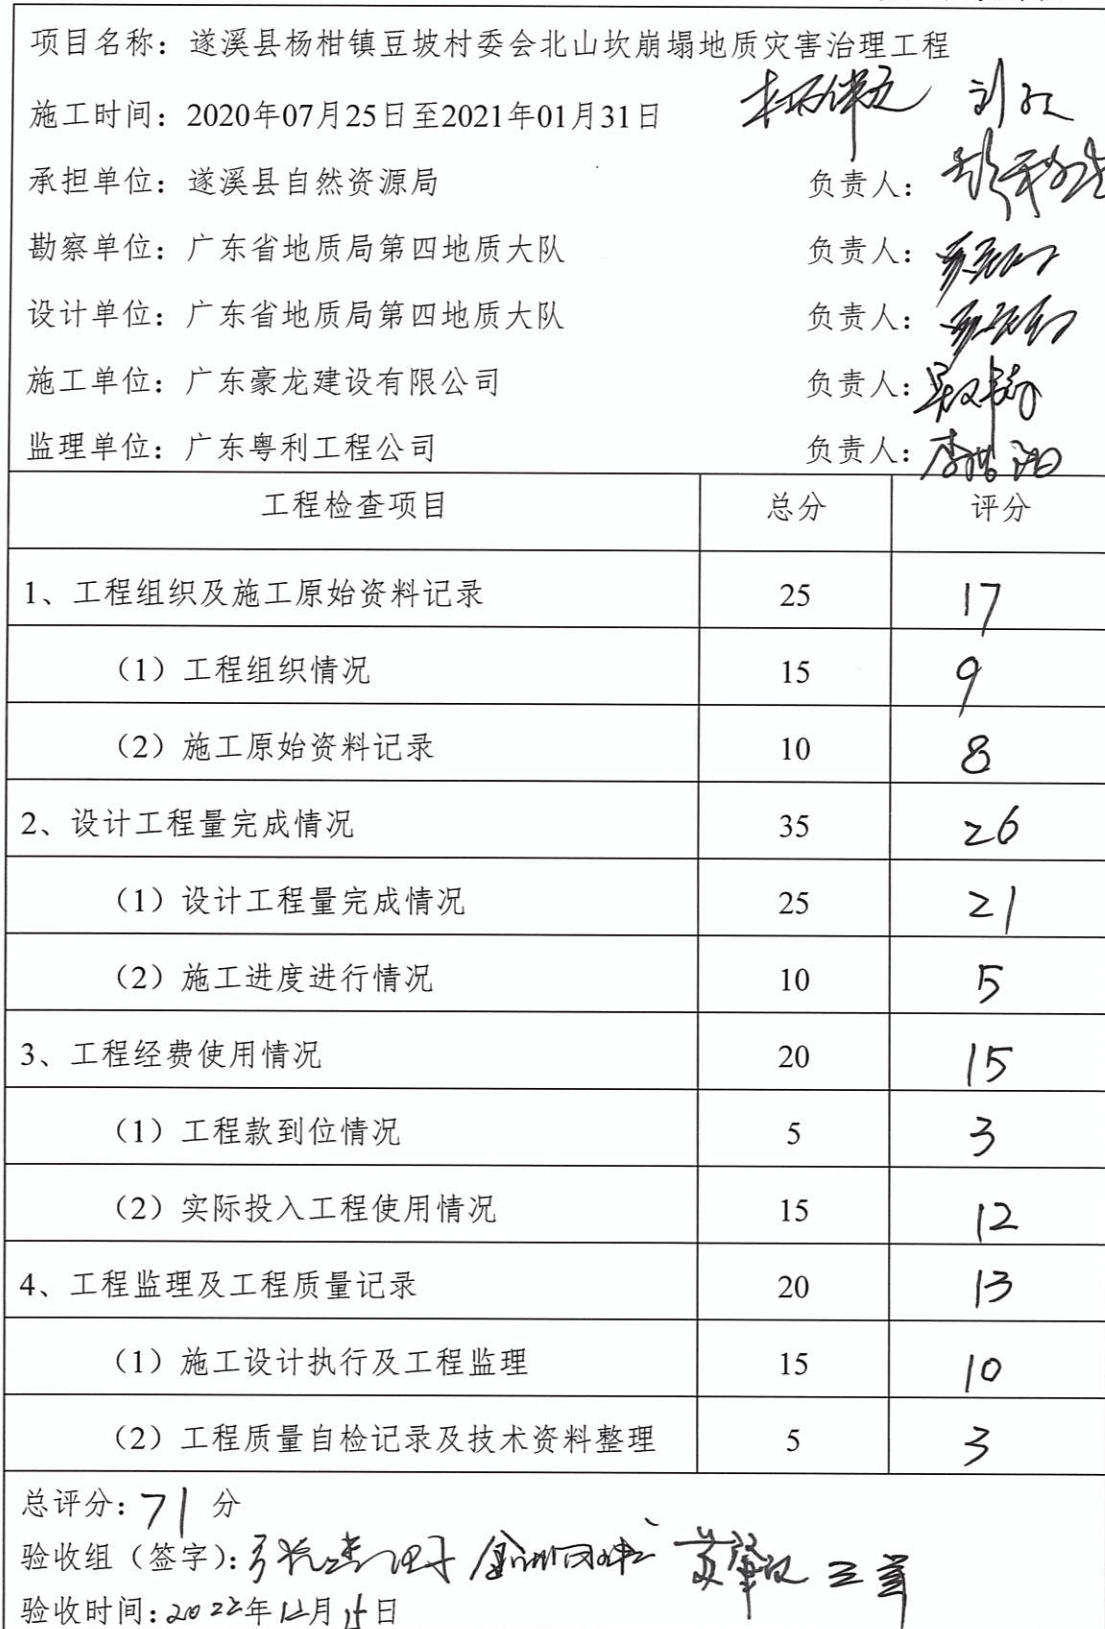 项目名称：遂溪县杨柑镇豆坡村委会北山坎崩塌地质灾害治理工程
施工时间：2020年07月25日至2021年01月31日
承担单位：遂溪县自然资源局 负责人：
勘察单位：广东省地质局第四地质大队 负责人：
设计单位：广东省地质局第四地质大队 负责人：
施工单位：广东豪龙建设有限公司 负责人：
监理单位：广东粤利工程公司 负责人：
工程检查项目 总分 评分
1、工程组织及施工原始资料记录 25 17
（1）工程组织情况 15 9
（2）施工原始资料记录 10 8
2、设计工程量完成情况 35 26
（1）设计工程量完成情况 25 21
（2）施工进度进行情况 10 5
3、工程经费使用情况 20 15
（1）工程款到位情况 5 3
（2）实际投入工程使用情况 15 12
4、工程监理及工程质量记录 20 13
（1）施工设计执行及工程监理 15 10
（2）工程质量自检记录及技术资料整理 5 3
总评分：71 分
验收组（签字）：
验收时间：2022年12月15日